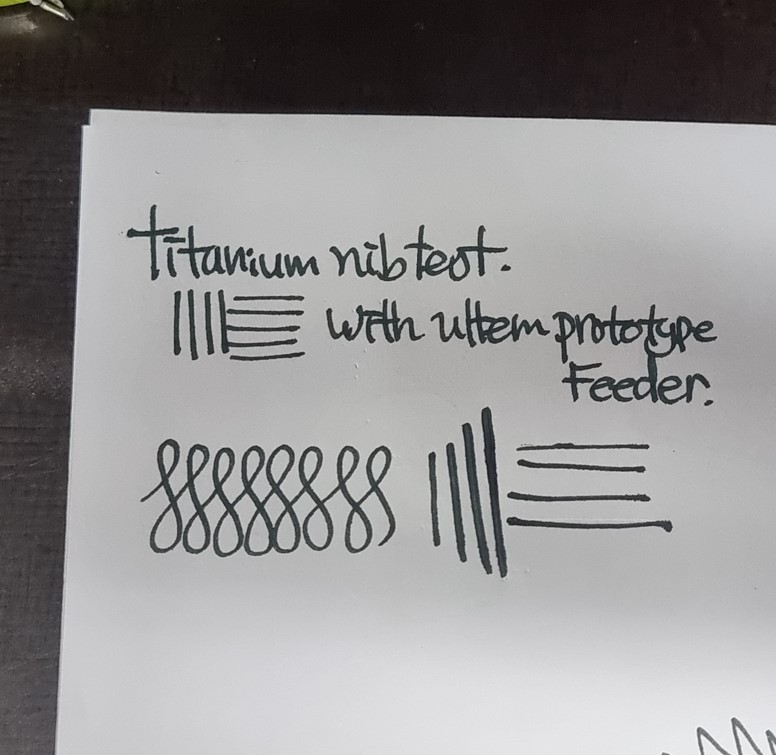 Titanium nib test.
With ultem prototype
Feeder.